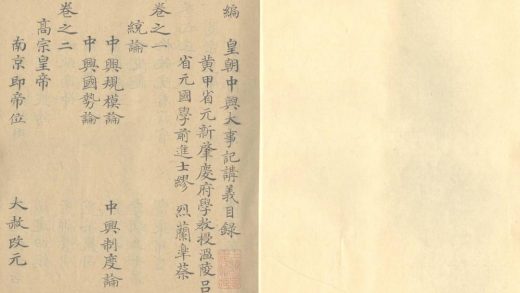 編 皇朝中興大事記講義目録
黄甲省元新肇慶府學教授溫陵呂
省元國學前進士繆 烈蘭皐蔡
卷之一
統論
中興規模論 中興制度論
中興國勢論
卷之二
高宗皇帝
南京即帝位 大赦改元